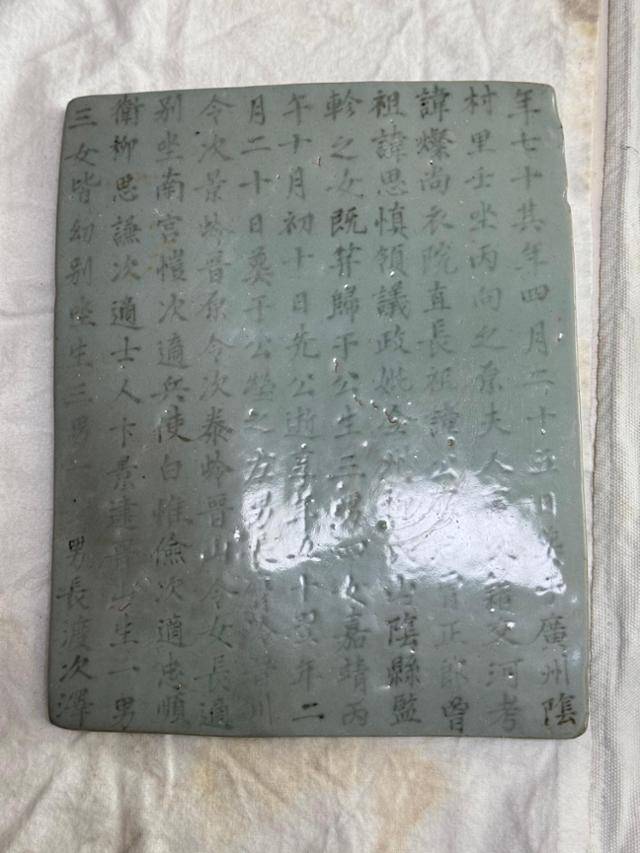 年七十其年四月二十五日葬于廣州陰
村里壬坐丙向之原夫人籍交河考
諱燦尚衣院直長祖諱公曹正郎曾
祖諱思慎領議政妣全州山陰縣監
軫之女既笄歸于公生三男四女嘉靖丙
午十月初十日先公逝享年五十年二
月二十日葬于公塋之左男長川
令次景岭晉原令次泰岭晉山令女長適
別坐南宮愷次適兵使白惟儉次適忠順
衛柳思謙次適士人卞景達晉山生一男
三女皆幼別坐生三男一男長渡次澤